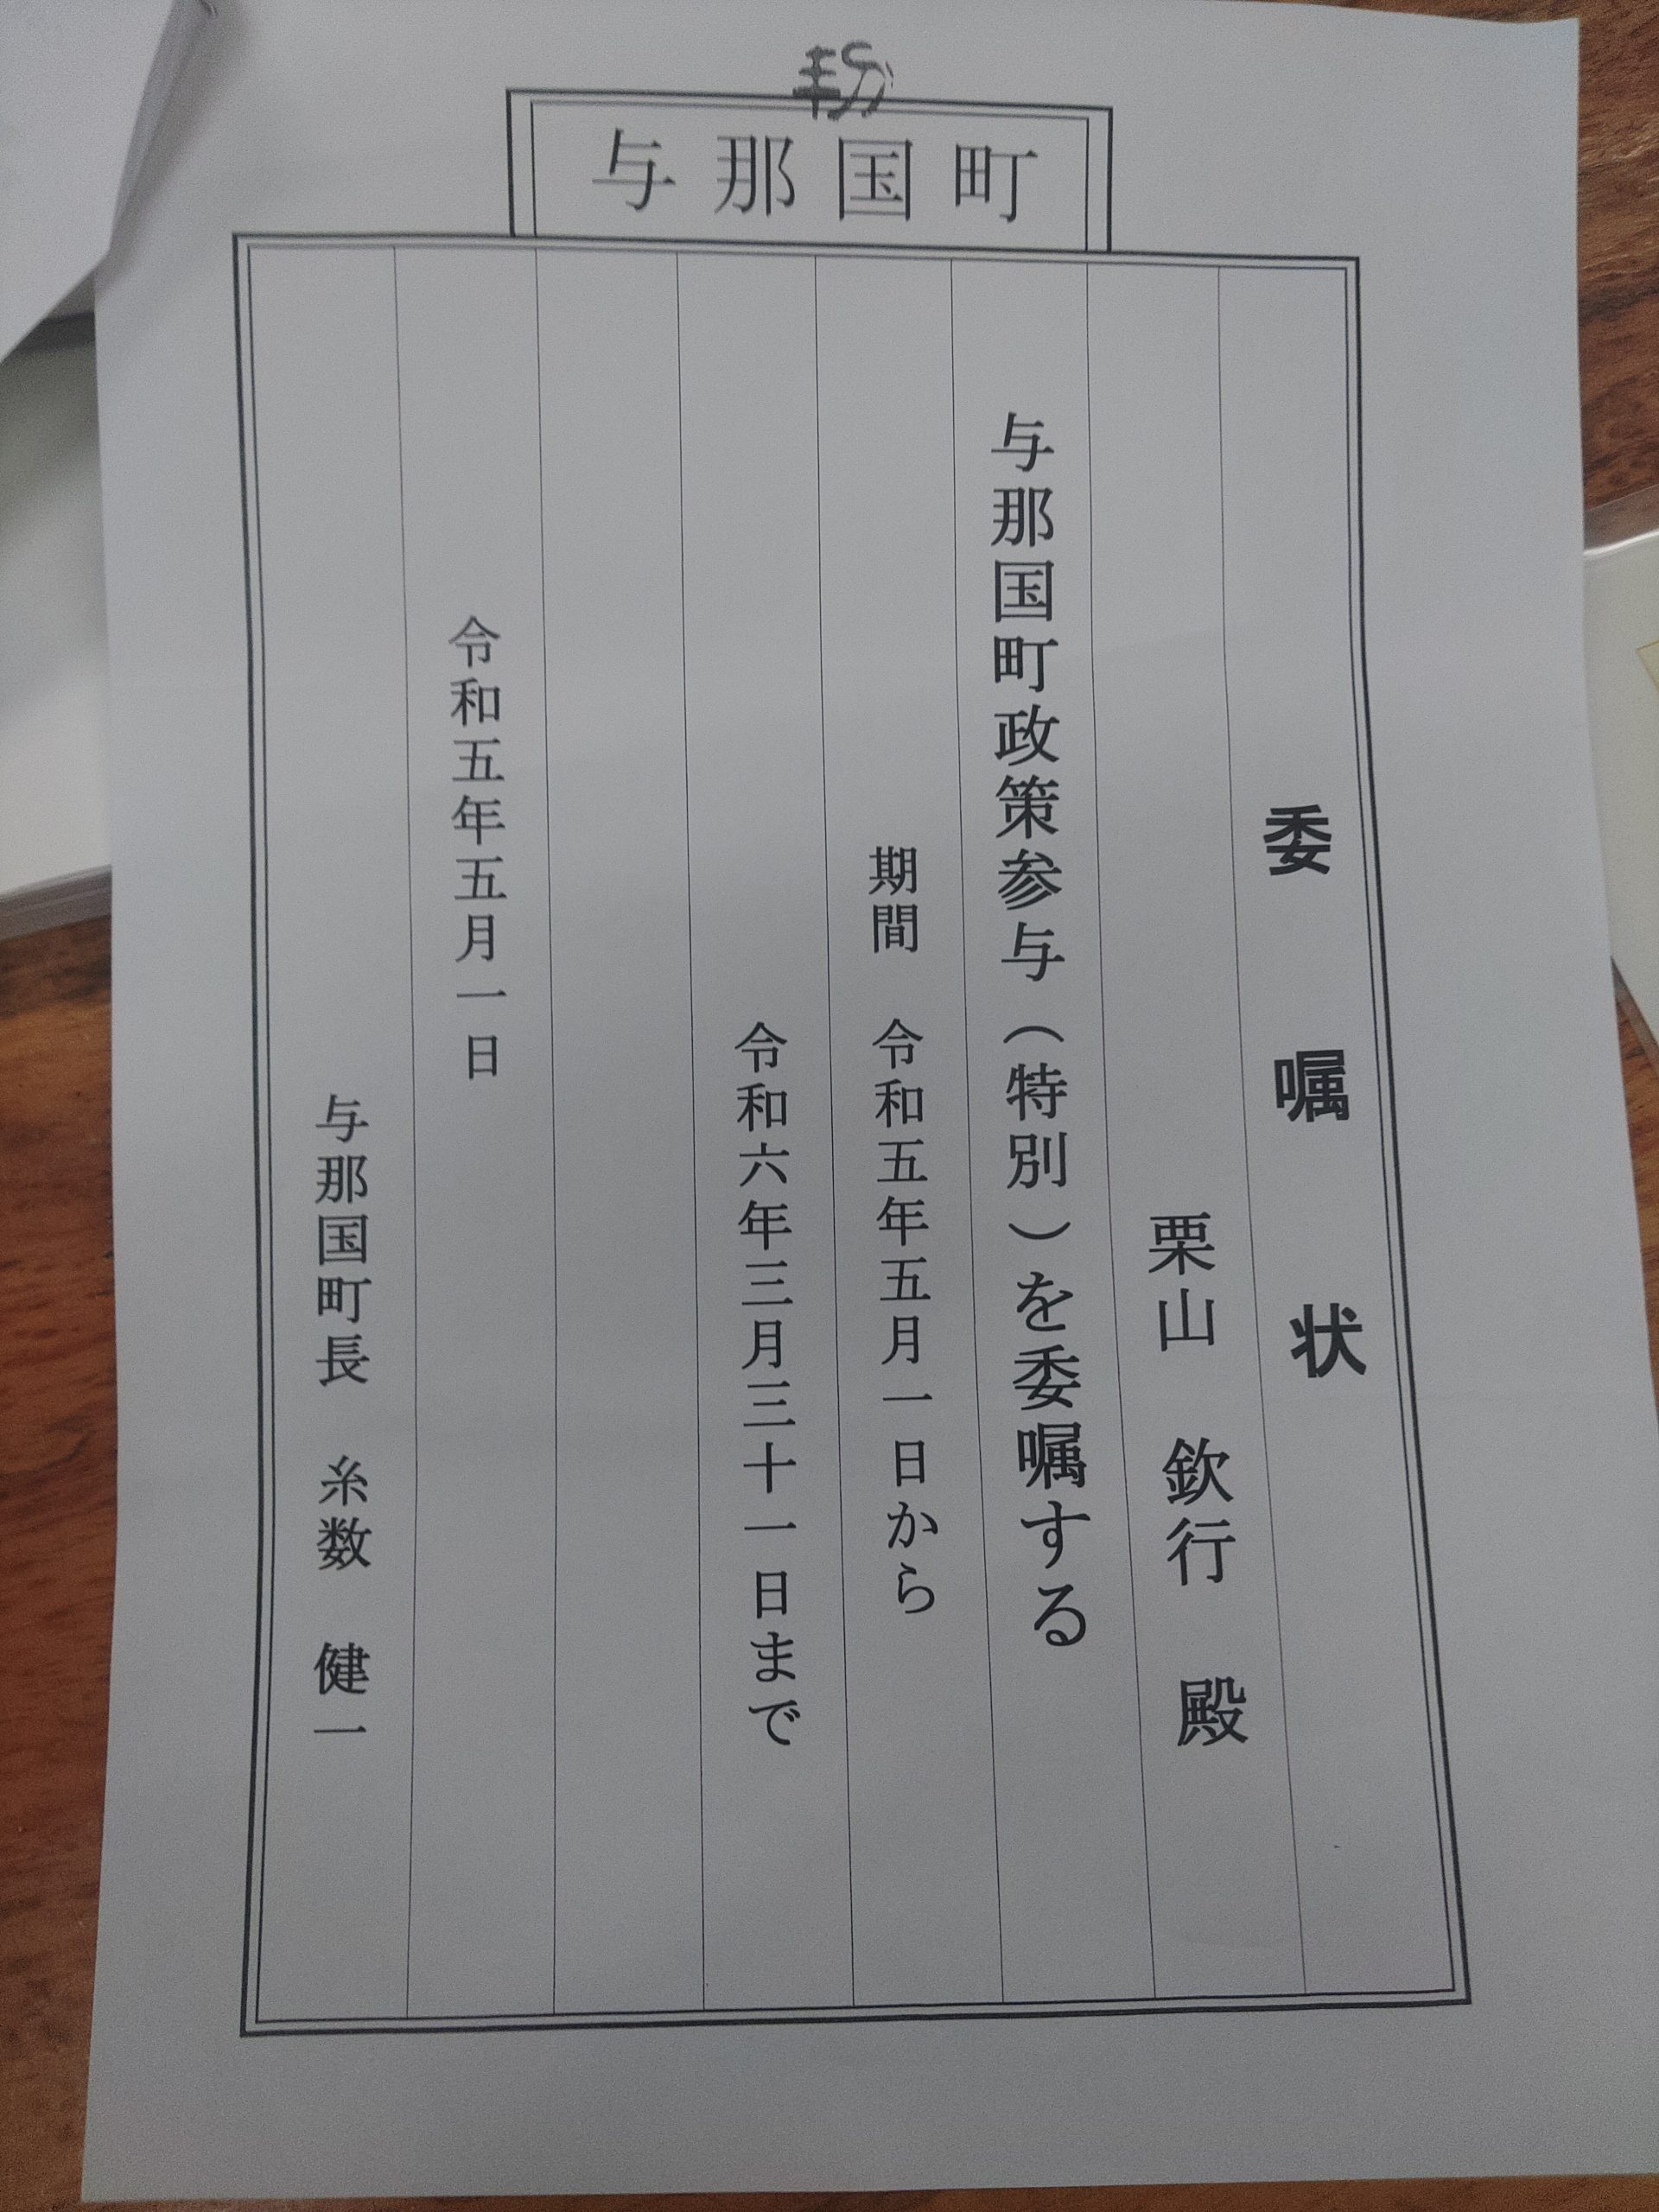 与那国町
委嘱状
栗山 欽行 殿
与那国町政策参与（特別）を委嘱する
期間 令和五年五月一日から
令和六年三月三十一日まで
令和五年五月一日
与那国町長 糸数 健一